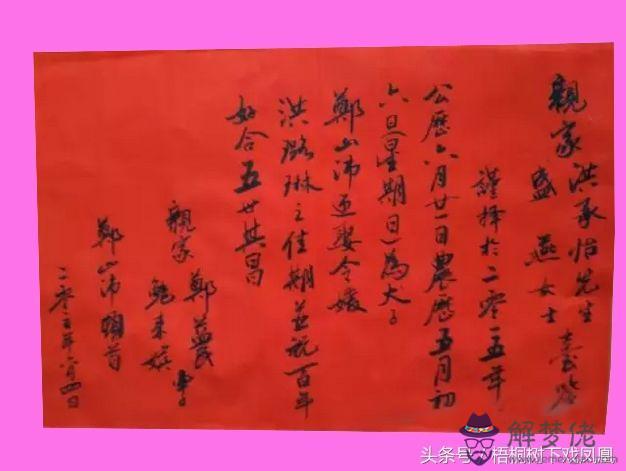 親家洪承怡先生臺鉴
盛燕女士
謹擇於二零一五年
公歷六月廿一日農歷五月初
六日(星期日)為大子
鄭山沛迎娶令媛
洪璐琳之佳期並祝百年
好合五世其昌
親家鄭益民
鮑来嬌
鄭山沛頓首
二零一五年六月四日
解梦佬
www.jiemenglao.com
头条号/梧桐树下戏凤凰